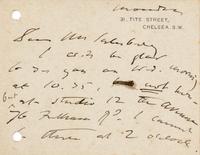 31, TITE STREET,
CHELSEA. S.W.
Dear Mrs
I will be glad
to see you on Wed. morning
at 10.35, not here
but at studio 12 the Avenue
76 Fulham Rd. I cannot
there at 2 o'clock